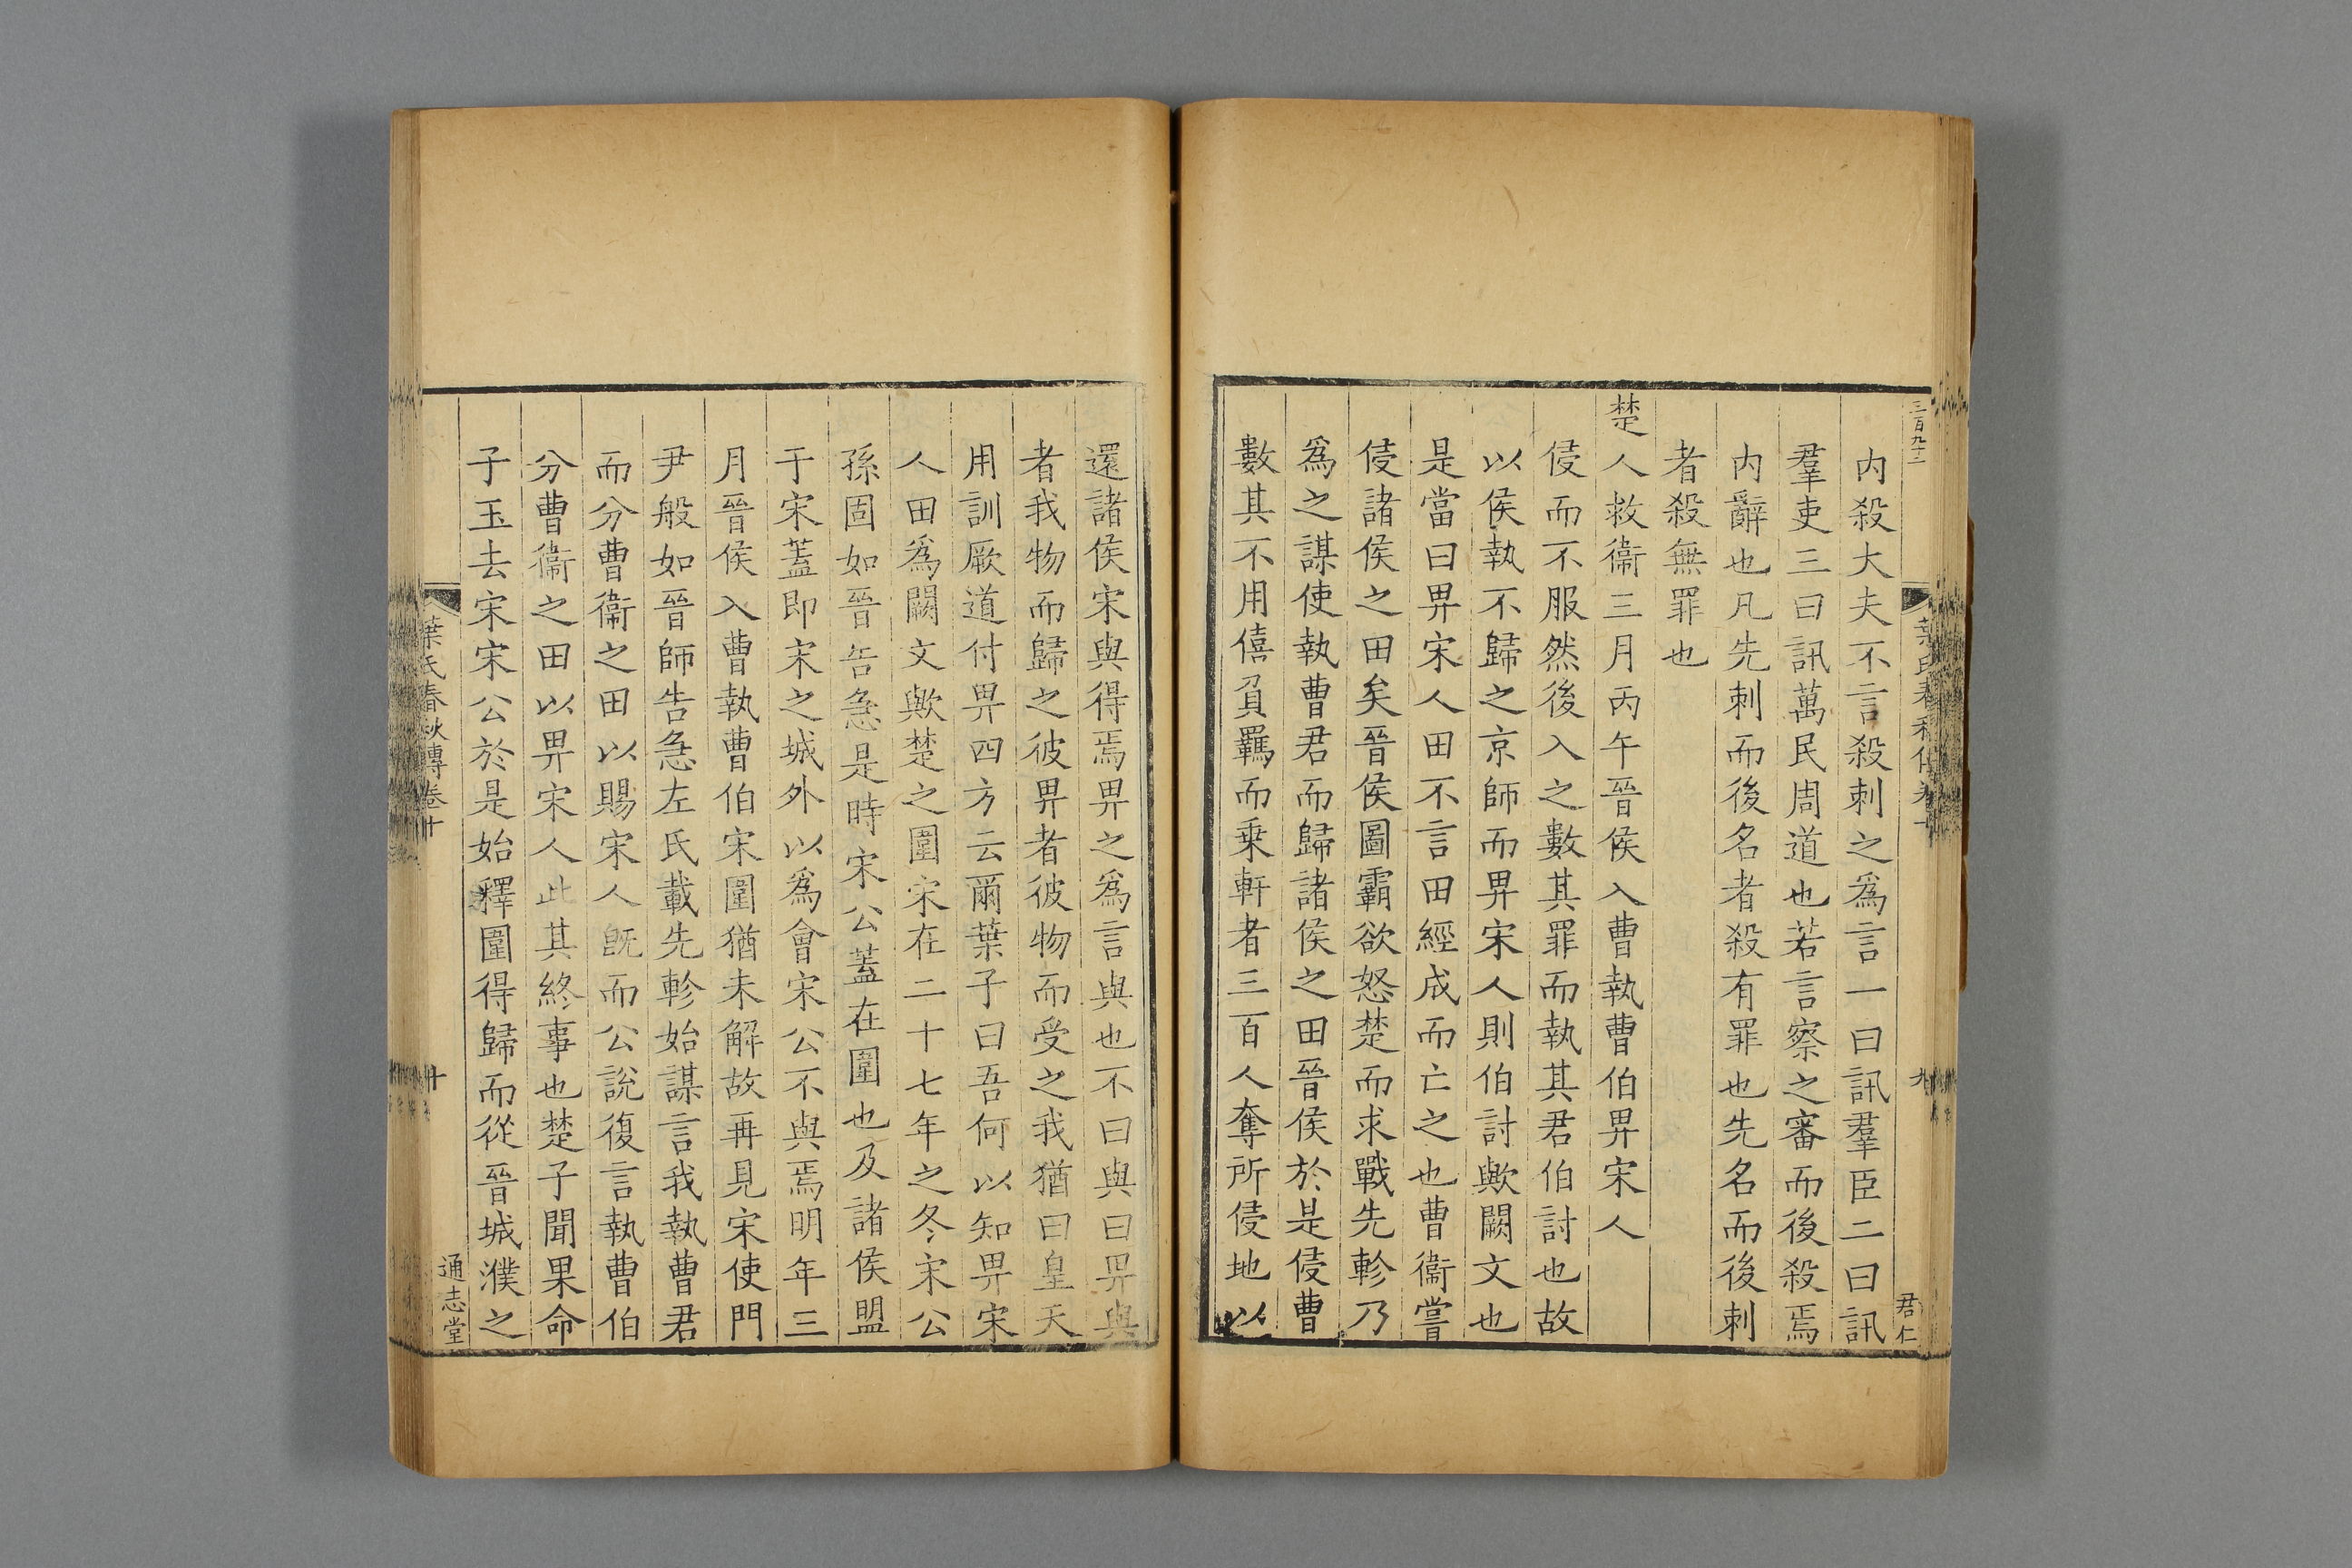 三百九十二
葉氏春秋傳卷十
九
君仁
内殺大夫不言殺刺之爲言一曰訊羣臣二曰訊
羣吏三曰訊萬民周道也若言察之審而後殺焉
内辭也凡先刺而後名者殺有罪也先名而後刺
者殺無罪也
楚人救衞三月丙午晉侯入曹執曹伯畀宋人
侵而不服然後入之數其罪而執其君伯討也故
以侯執不歸之京師而畀宋人則伯討歟闕文也
是當曰畀宋人田不言田經成而亡之也曹衞嘗
侵諸侯之田矣晉侯圖霸欲怒楚而求戰先軫乃
爲之謀使執曹君而歸諸侯之田晉侯於是侵曹
數其不用僖負羈而乗軒者三百人奪所侵地以
還諸侯宋與得焉畀之爲言與也不曰與曰畀與
者我物而歸之彼畀者彼物而受之我猶曰皇天
用訓厥道付畀四方云爾葉子曰吾何以知畀宋
人田爲闕文歟楚之圍宋在二十七年之冬宋公
孫固如晉告急是時宋公蓋在圍也及諸侯盟
于宋蓋即宋之城外以爲會宋公不與焉明年三
月晉侯入曹執曹伯宋圍猶未解故再見宋使門
尹般如晉師告急左氏載先軫始謀言我執曹君
而分曹衞之田以賜宋人既而公說復言執曹伯
分曹衞之田以畀宋人此其終事也楚子聞果命
子玉去宋宋公於是始釋圍得歸而從晉城濮之
葉氏春秋傳卷十
十
通志堂